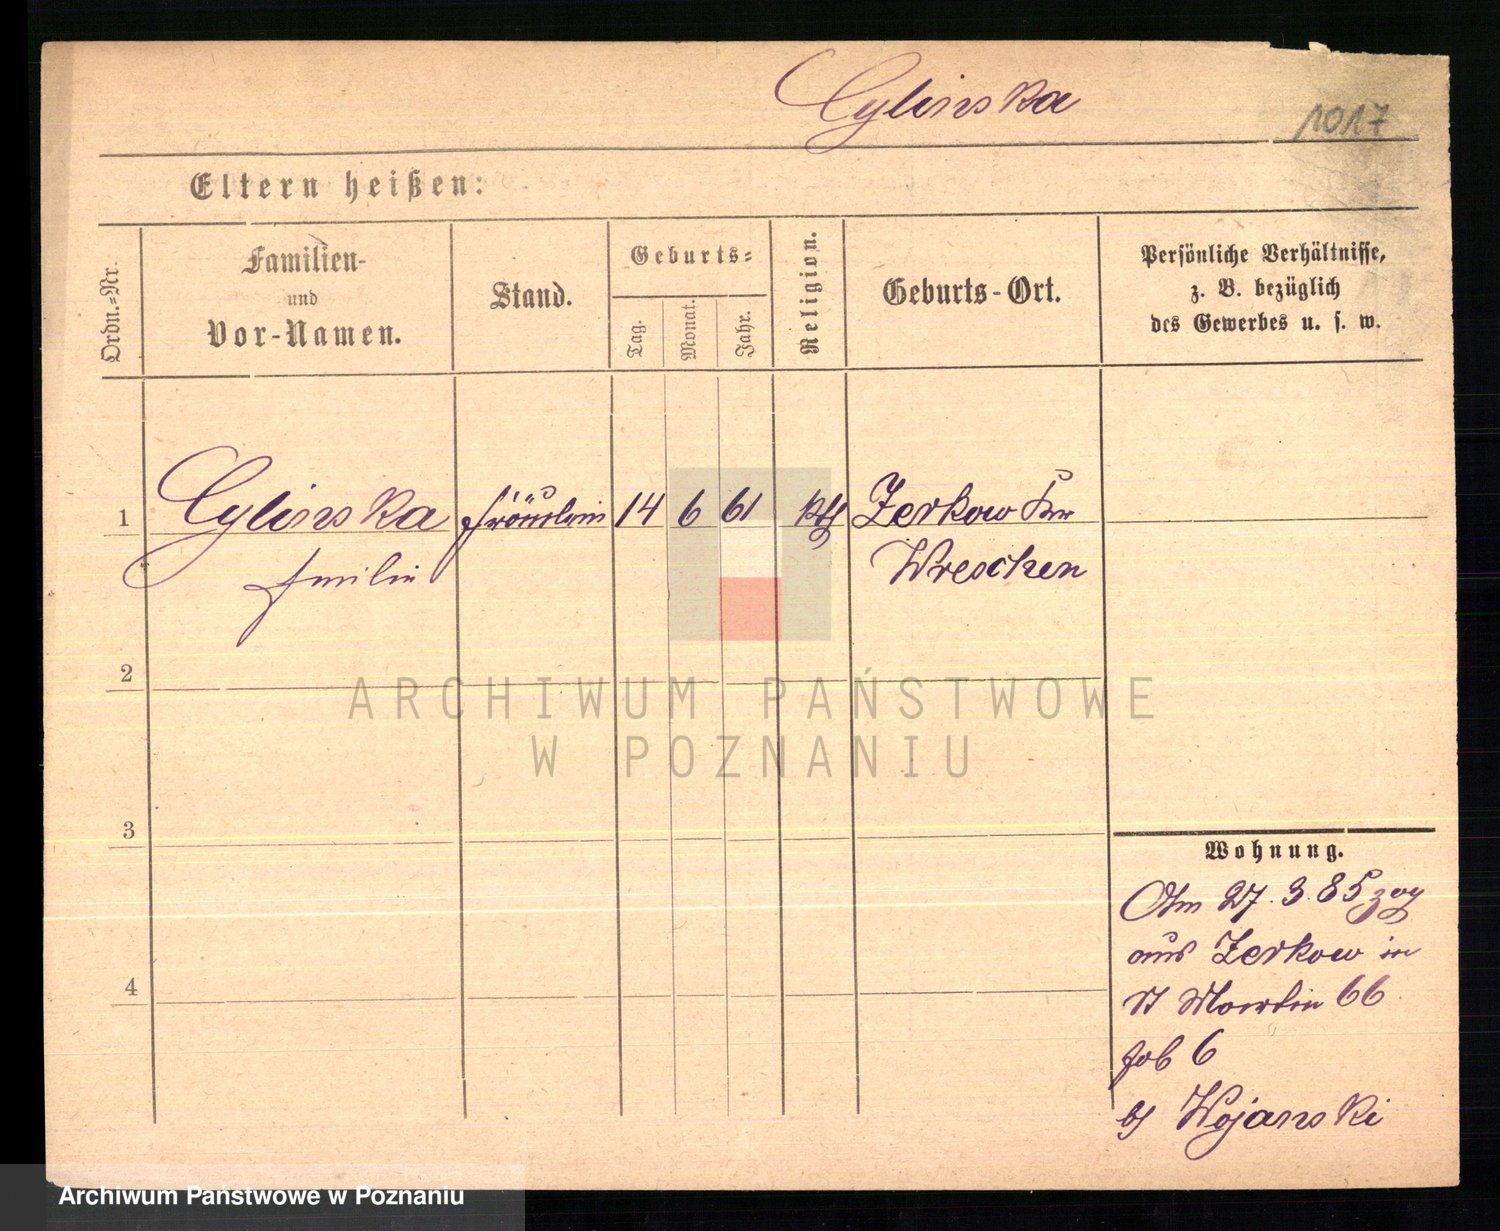 Cylinska
1017
Eltern heißen:
Ordn.=Nr.
Familien-
und
Vor-Namen.
Stand.
Geburts=
Tag.
Monat.
Jahr.
Religion.
Geburts-Ort.
Persönliche Verhältnisse,
z. B. bezüglich
des Gewerbes u. s. w.
1 Cylinska Fräulein 14 6 61 kth Zerkow Kr
Emilie Wreschen
2
ARCHIWUM PAŃSTWOWE
W POZNANIU
3
Wohnung.
Am 27.3.85 zog
aus Zerkow in
St Martin 66
4
6
bj Wojanski
Archiwum Państwowe w Poznaniu